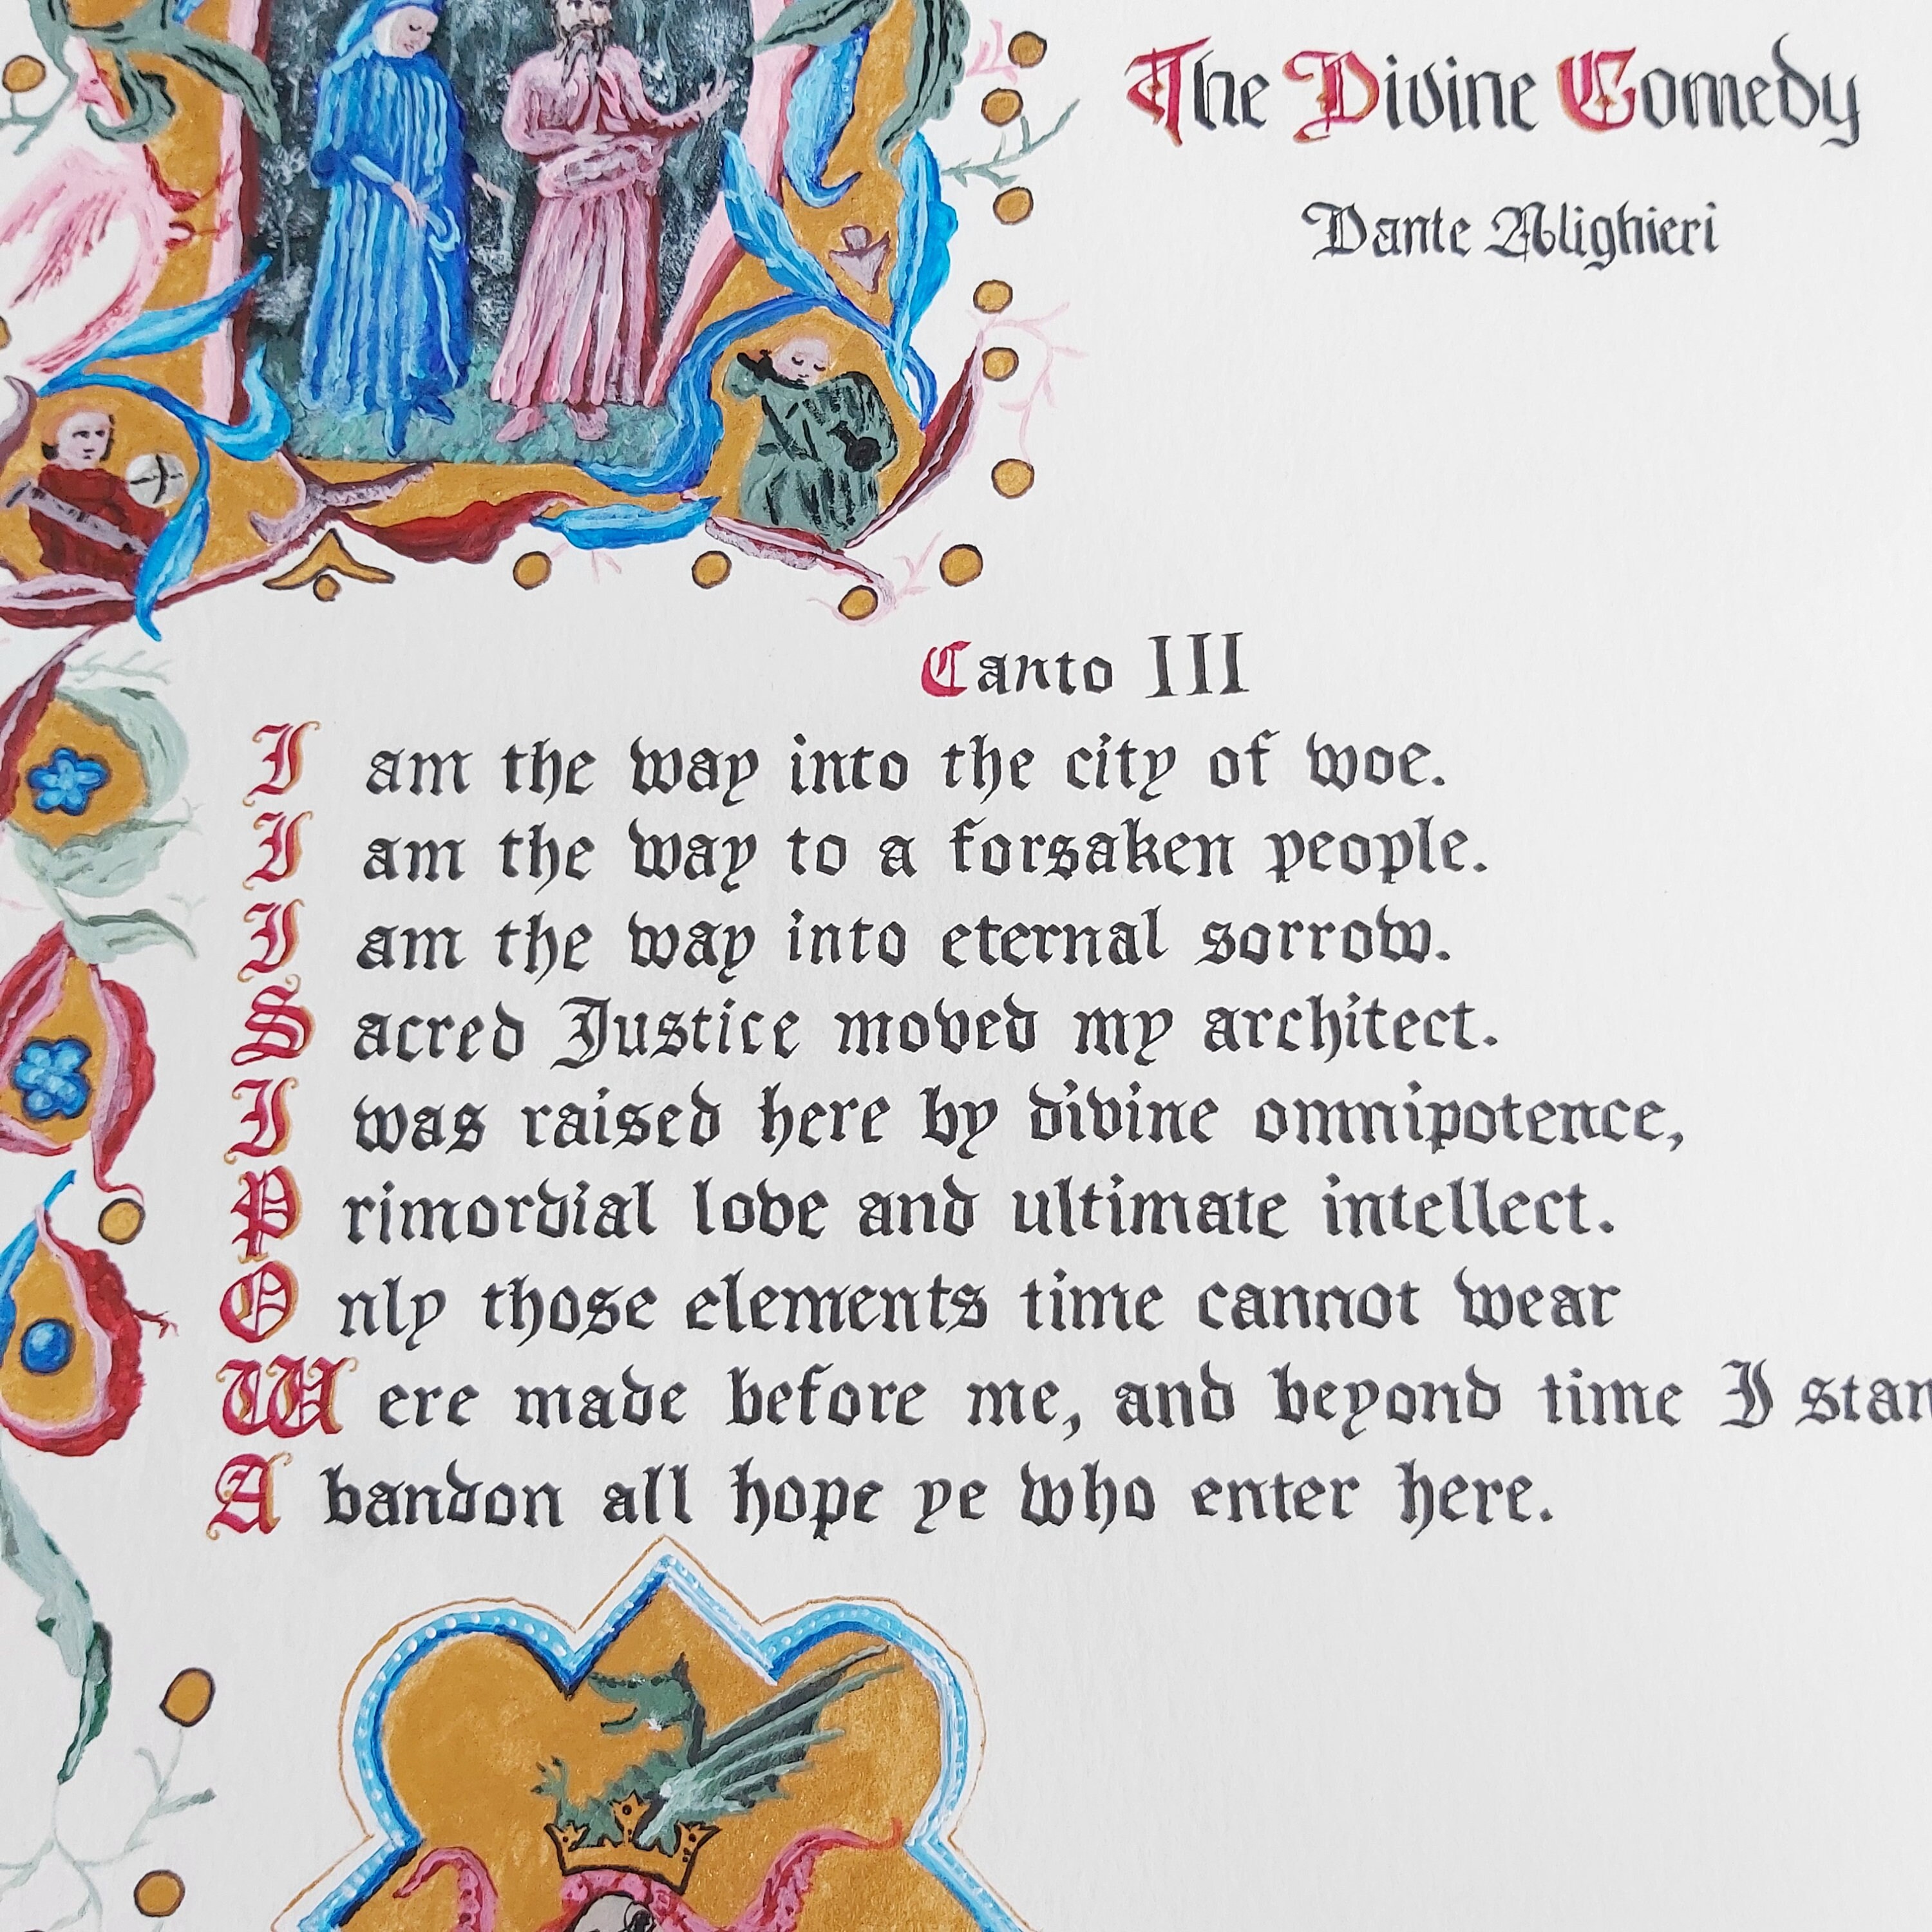 The Divine Comedy
Dante Alighieri
Canto III
I am the way into the city of woe.
I am the way to a forsaken people.
I am the way into eternal sorrow.
Sacred Justice moved my architect.
I was raised here by divine omnipotence,
Primordial love and ultimate intellect.
Only those elements time cannot wear
Were made before me, and beyond time I stan
Abandon all hope ye who enter here.